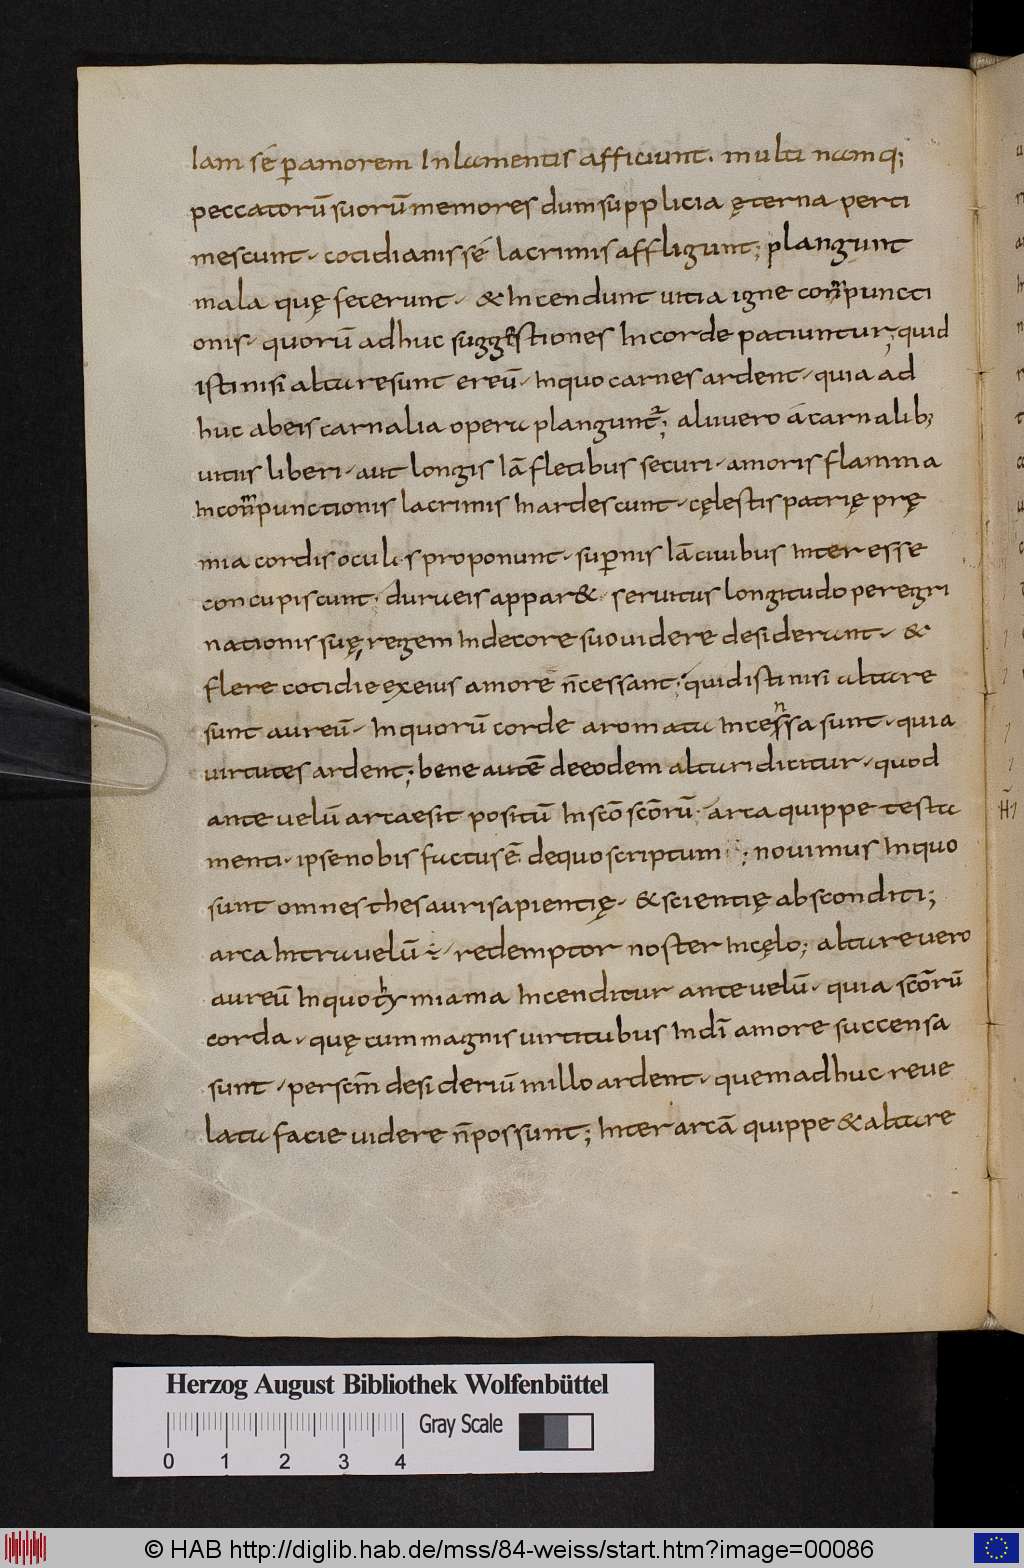 Iam sé p̱amorem In lamentis afficiunt. multi namq;
peccatorū suorū memores dum supplicia ęterna perti
mescunt, cotidianis sé lacrimis affligunt; plangunt
mala quę fecerunt, & Incendunt uitia igne conpuncti
onis, quorū adhuc suggestiones In corde patiuntur; quid
isti nisi altare sunt ereū, Inquo carnes ardent, quia ad
huc abeis carnalia opera plangunt; alii uero á carnalib;
uitiis liberi, aut longis iā fletibus securi, amoris flamma
In conpunctionis lacrimis Inardescunt, cęlestis patrię prę
mia cordis oculis proponunt, sup̱nis iā ciuibus Interesse
concupiscunt; dura eis appar& seruitus longitudo peregri
nationis suę, regem Indecore suo uidere desiderant, &
flere cotidie exeius amore ñ cessant; quid isti nisi altare
sunt aureū, Inquorū corde aromata Incensa sunt, quia
uirtutes ardent; bene autē deeodem altari dicitur, quod
ante uelū arcae sit positū In scō scōrū; arca quippe testa
menti, ipse nobis factus ē dequo scriptum; nouimus Inquo
sunt omnes thesauri sapientię, & scientię absconditi;
arca Intra uelū ÷, redemptor noster Incęlo; altare uero
aureū Inquo thymiama Incenditur ante uelū, quia scōrū
corda, quę cum magnis uirtutibus In dī amore succensa
sunt, per scm̄ desideriū In illo ardent, quem adhuc reue
lata facie uidere ñ possunt; Inter arcā quippe & altare
Herzog August Bibliothek Wolfenbüttel
Gray Scale
0 1 2 3 4
© HAB http://diglib.hab.de/mss/84-weiss/start.htm?image=00086